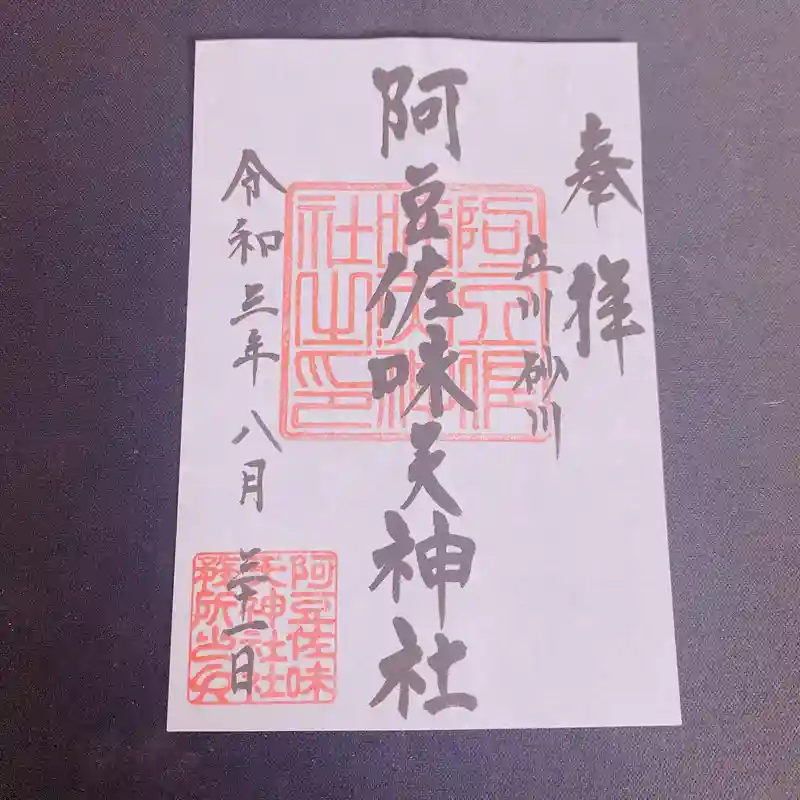 奉拝
立川砂川
阿豆佐味天神社
令和三年八月三十一日
阿豆佐味
天神社社
務所之印